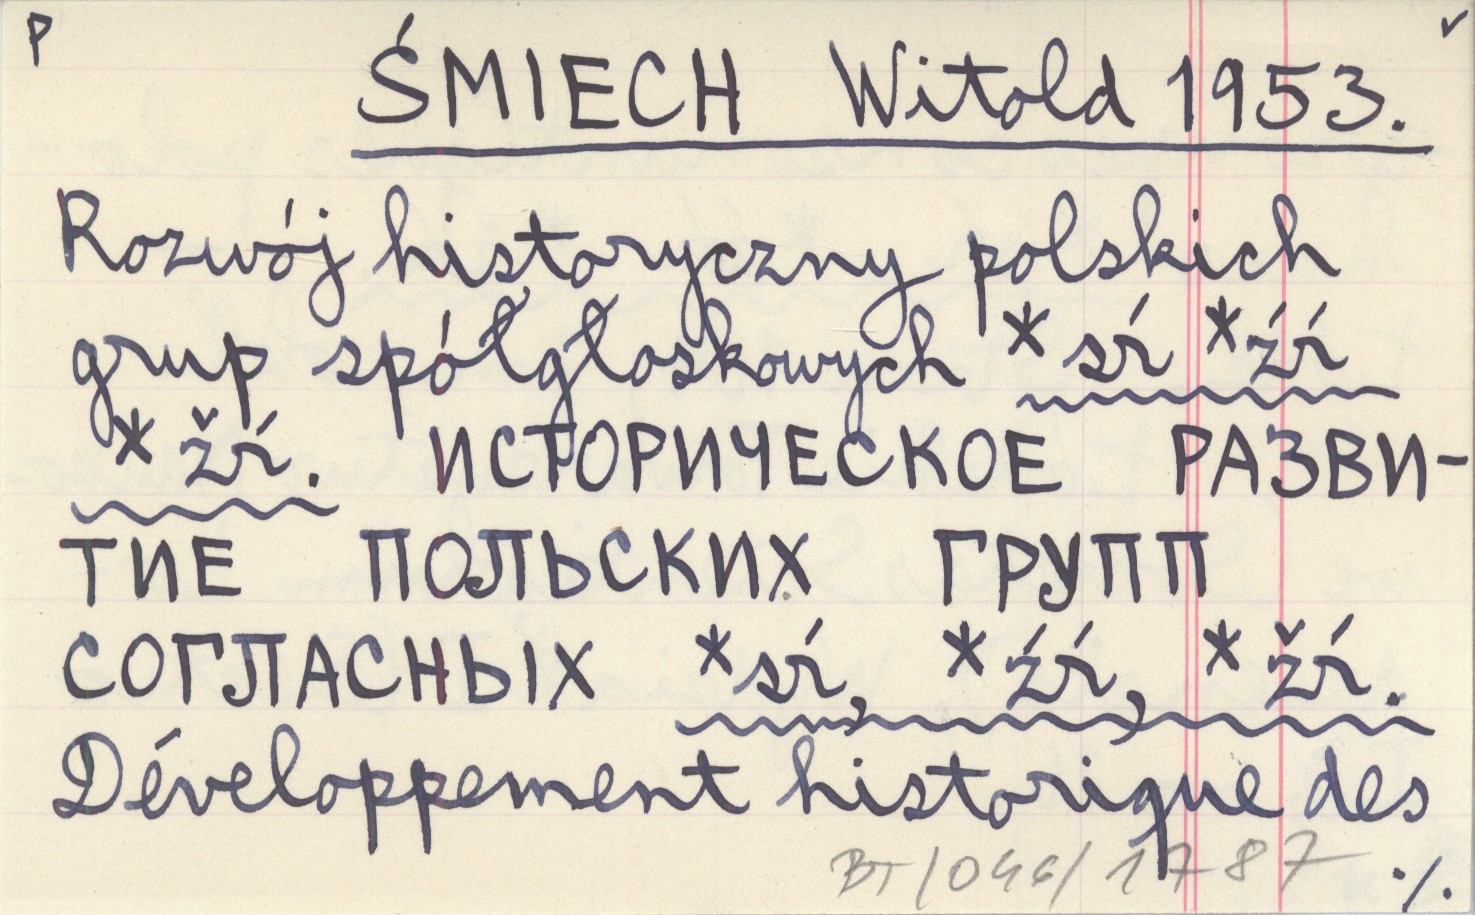 P ŚMIECH Witold 1953. ✓
Rozwój historyczny polskich
grup spółgłoskowych *sŕ *źŕ
*žŕ. ИСТОРИЧЕСКОЕ РАЗВИ-
ТИЕ ПОЛЬСКИХ ГРУПП
СОГЛАСНЫХ *sŕ, *źŕ, *žŕ.
Développement historique des
BT/046/1787 ./.